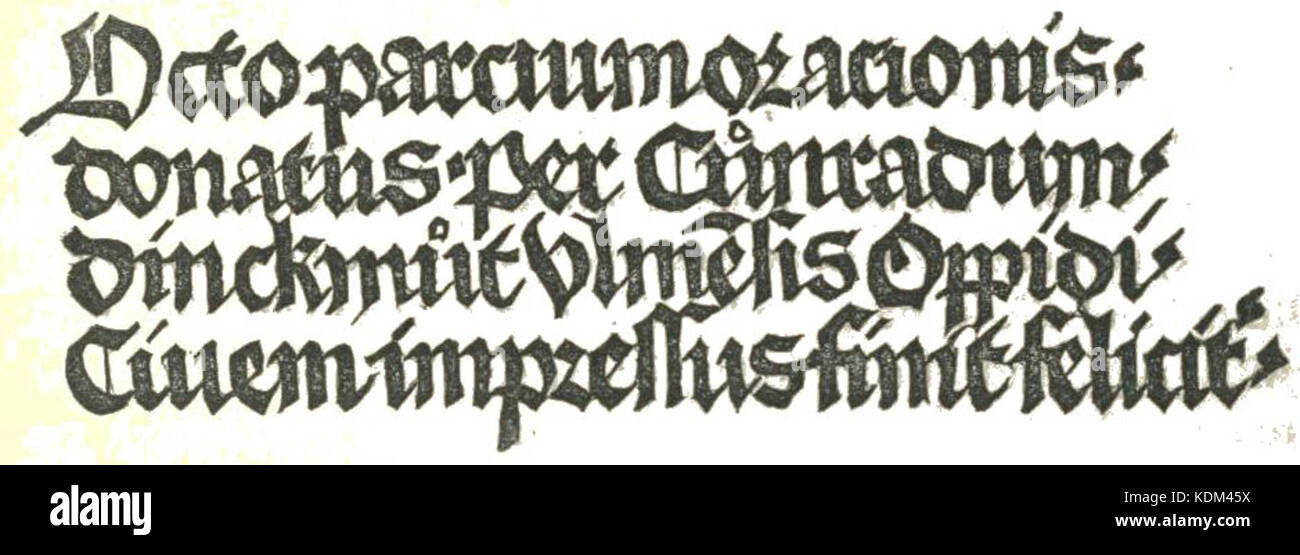 Octo parcium oracionis·
donatus·Per Cůnradum·
dinckmůt Vlmēsis Oppidi·
Ciuem impressus finit felicit̾·
alamy stock photo
KDM45X
www.alamy.com